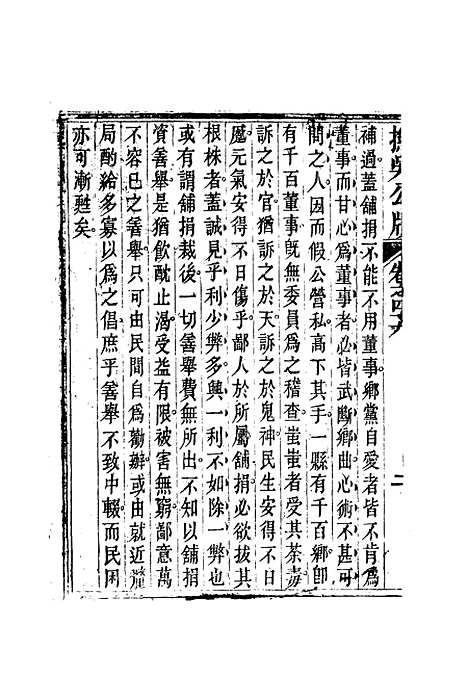 撫吳公牘 卷 二
補過蓋舖捐不能不用董事鄉黨自愛者皆不肯爲
董事而甘心爲董事者必皆武斷鄉曲心術不甚可
問之人因而假公營私高下其手一縣有千百鄉卽
有千百董事旣無委員爲之稽查蚩蚩者受其荼毒
訴之於官猶訴之於天訴之於鬼神民生安得不日
蹙元氣安得不日傷乎鄙人於所屬舖捐必欲拔其
根株者蓋誠見乎利少弊多興一利不如除一弊也
或有謂舖捐裁後一切善舉費無所出不知以舖捐
資善舉是猶飲酖止渴受益有限被害無窮鄙意萬
不容已之善舉只可由民間自爲勸辦或由就近釐
局酌給多寡以爲之倡庶乎善舉不致中輟而民困
亦可漸甦矣